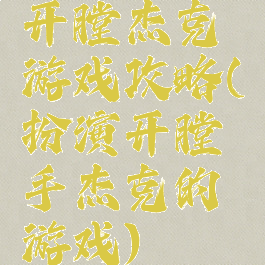 开膛杰克
游戏攻略(
扮演开膛
手杰克的
游戏)